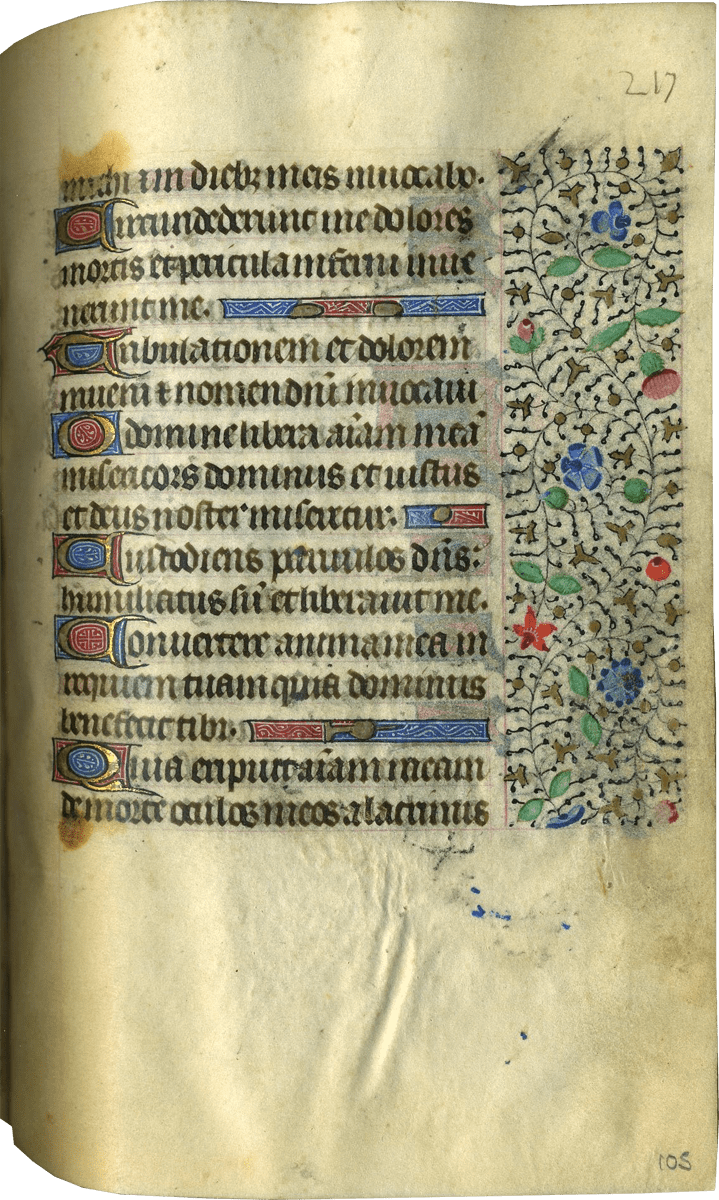 217
michi et in dieb; meis inuocabo.
Circundederunt me dolores
mortis et pericula inferni inue
nerunt me.
Tribulationem et dolorem
inueni et nomen dnī inuocaui
O domine libera aīam meā
misericors dominus et iustus
et deus noster miseretur.
Custodiens paruulos dñs:
humiliatus sū et liberauit me.
Conuertere anima mea in
requiem tuam quia dominus
benefecit tibi.
Quia eripuit aīam meam
de morte oculos meos a lacrimis
105